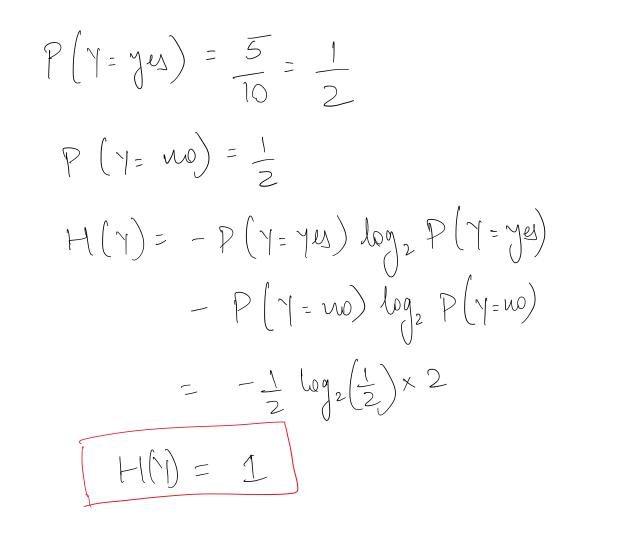 P(Y=yes) = 5/10 = 1/2
P(Y=no) = 1/2
H(Y) = -P(Y=yes) log₂ P(Y=yes)
- P(Y=no) log₂ P(Y=no)
= -1/2 log₂(1/2) × 2
H(Y) = 1